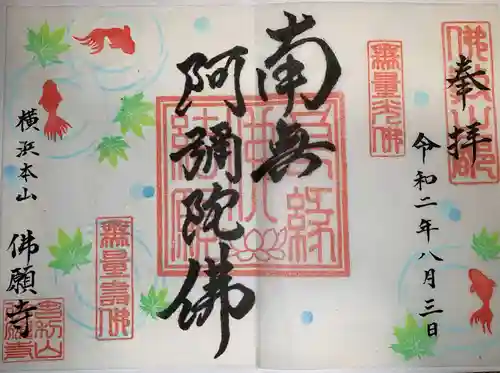 奉拝
令和二年八月三日
無量光佛
南無
阿彌陀佛
無量壽佛
横浜本山
佛願寺